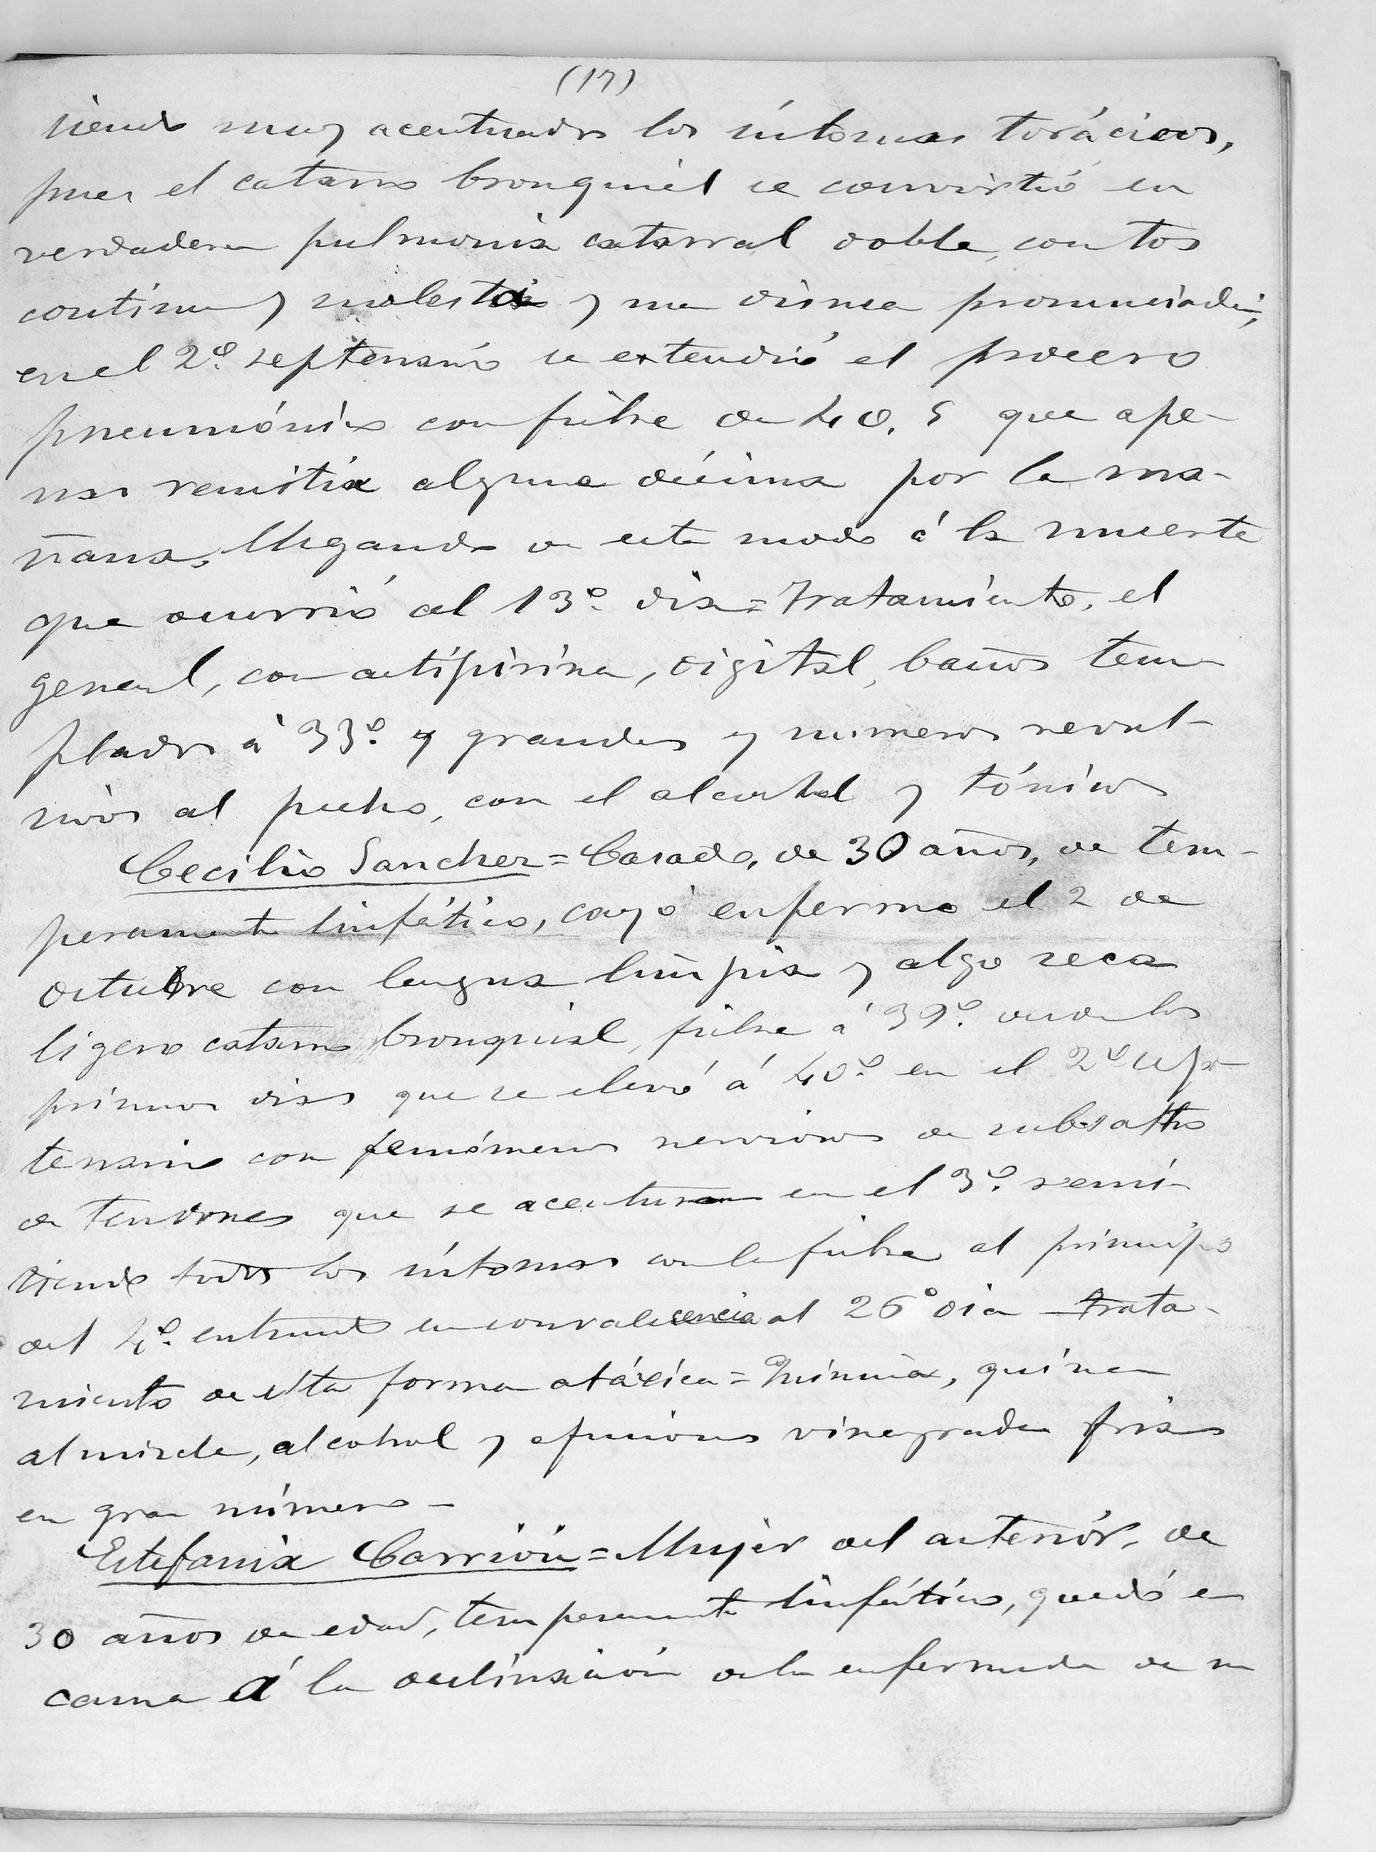 (17)
siendo muy acentuados los síntomas torácicos,
pues el catarro bronquial se convirtió en
verdadera pulmonia catarral doble, con tos
continua y molesta y una disnea pronunciada;
en el 2º septenario se extendió el proceso
pneumónico con fiebre de 40.5 que ape-
nas remitia alguna décima por la ma-
ñana, llegando de este modo á la muerte
que ocurrió al 13º dia = Tratamiento, el
general, con antipirina, digital, baños tem-
plados á 33º y grandes y numeros revul-
sivos al pecho, con el alcohol y tónicos
Cecilio Sanchez = Casado, de 30 años, de tem-
peramento linfático, cayó enfermo el 2 de
octubre con lengua limpia y algo seca
ligero catarro bronquial, fiebre á 39º desde los
primeros dias que se elevó á 40º en el 2º sep-
tenario con fenómenos nerviosos de subsalto
de tendones que se acentuaron en el 3º remi-
tiendo todos los síntomas con la fiebre al principio
del 4º entrando en convalecencia al 26º dia - trata-
miento de esta forma atáxica = Quinina, quina
almizcle, alcohol y afusiones vinagradas frias
en gran número -
Estefania Carrión = Mujer del anterior, de
30 años de edad, temperamento linfático, quedó en
cama á la declinación de la enfermedad de su